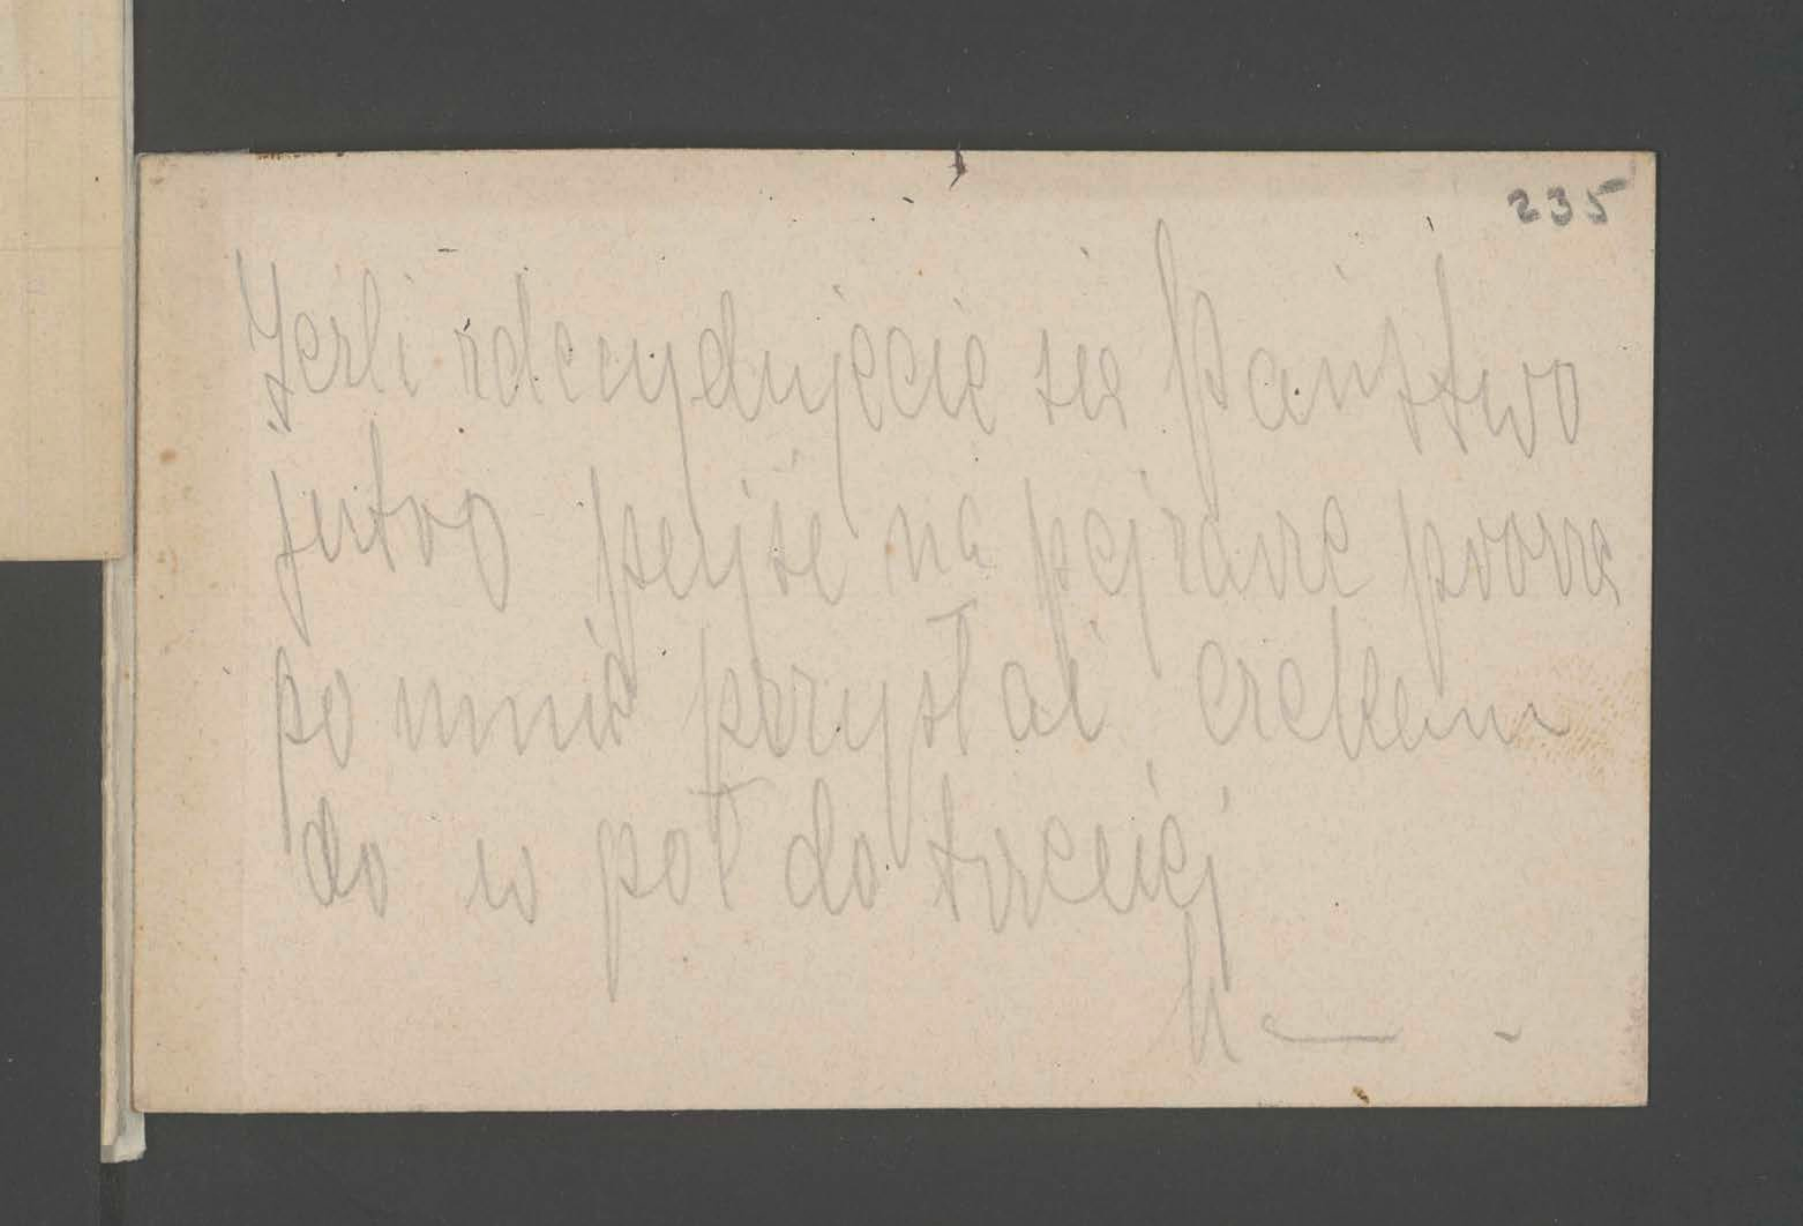 235
Jeżli zdecydujecie się Państwo
jutro pejść na pejzaże proszę
po mnie przysłać czekam
do w pół do trzeciej